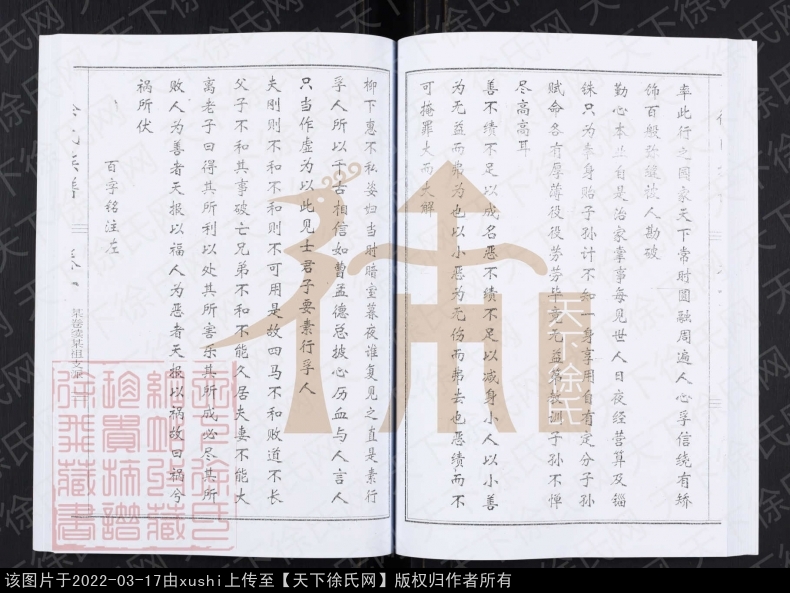 率此行之国家天下常时圆融周遍人心孚信绕有矫
饰百般弥缝被人勘破
勤心本业自是治家掌事每见世人日夜经营算及锱
铢只为奉身贻子孙计不知一身享用自有定分子孙
赋命各有厚薄役役劳劳毕竟无益第教训子孙不惮
尽高高耳
善不绩不足以成名恶不绩不足以减身小人以小善
为无益而弗为也以小恶为无伤而弗去也恶绩而不
可掩罪大而大解
柳下惠不私姿妇当时暗室幕夜谁复见之直是素行
孚人所以千古相信如曹孟德总披心历血与人言人
只当作虚为以此见士君子要素行孚人
夫刚则不和不和则不可用是故四马不和败道不长
父子不和其事破亡兄弟不和不能久居夫妻不能大
离老子曰得其所利以处其所害乐其所成必尽其所
败人为善者天报以福人为恶者天报以祸故曰祸今
祸所伏
百字铭注左
徐氏宗谱
卷一
天下徐氏
天下徐氏网
该图片于2022-03-17由xushi上传至【天下徐氏网】版权归作者所有